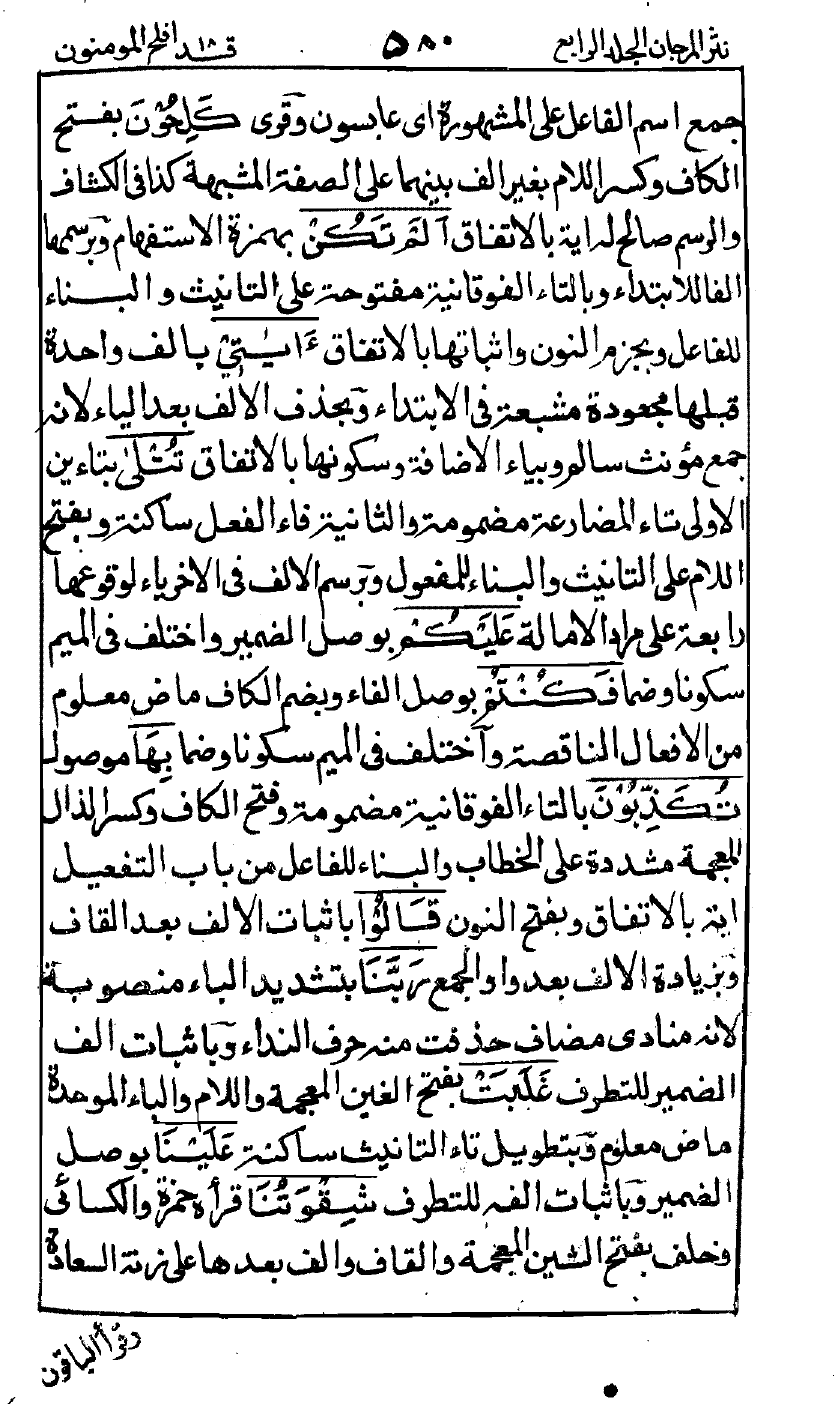 نثر المرجان الجلد الرابع ٥٨٠ قد افلح ١٨ المومنون
جمع اسم الفاعل على المشهورة اى عابسون وقرى كَلِحُوْنَ بفتح
الكاف وكسر اللام بغير الف بينهما على الصفة المشبهة كذا فى الكشاف
والرسم صالح له اية بالاتفاق اَلَمْ تَكُنْ بهمزة الاستفهام وبرسمها
الفا للابتداء وبالتاء الفوقانية مفتوحة على التانيث والبناء
للفاعل وبجزم النون واثباتها بالاتفاق ءَايٰتِىْ بالف واحدة
قبلها مجعودة مشبعة فى الابتداء وبحذف الالف بعد الياء لانه
جمع مؤنث سالم وبياء الاضافة وسكونها بالاتفاق تُتْلٰى بتاءين
الاولى تاء المضارعة مضمومة والثانية فاء الفعل ساكنة وبفتح
اللام على التانيث والبناء للمفعول وبرسم الالف فى الاخر ياء لوقوعها
رابعة على مراد الامالة عَلَيْكُمْ بوصل الضمير واختلف فى الميم
سكونا وضما فَكُنْتُمْ بوصل الفاء وبضم الكاف ماض معلوم
من الافعال الناقصة واختلف فى الميم سكونا وضما بِهَا موصول
تُكَذِّبُوْنَ بالتاء الفوقانية مضمومة وفتح الكاف وكسر الذال
المعجمة مشددة على الخطاب والبناء للفاعل من باب التفعيل
اية بالاتفاق وبفتح النون قَالُوْا باثبات الالف بعد القاف
وبزيادة الالف بعد واو الجمع رَبَّنَا بتشديد الباء منصوبة
لانه منادى مضاف حذفت منه حرف النداء وباثبات الف
الضمير للتطرف غَلَبَتْ بفتح الغين المعجمة واللام والباء الموحدة
ماض معلوم وبتطويل تاء التانيث ساكنة عَلَيْنَا بوصل
الضمير وباثبات الفه للتطرف شِقْوَتُنَا قرأه حمزة والكسائى
وخلف بفتح الشين المعجمة والقاف والف بعدها على زنة السعادة
وقرأ الباقون